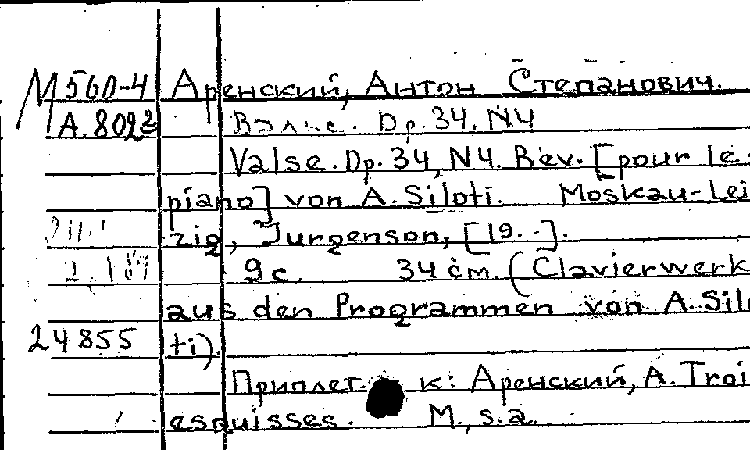 М560-4 Аренский, Антон Степанович.
А.802 Вальс. Op. 34, N4
Valse. Op. 34, N4. Rev. [pour le
piano] von A. Siloti. Moskau-Lei
zig, Jurgenson, [19..].
9 с. 34 см. (Clavierwerk
aus den Programmen von A. Silo
24855 ti).
Приплет. к: Аренский, А. Troi
esquisses. М., s.a.